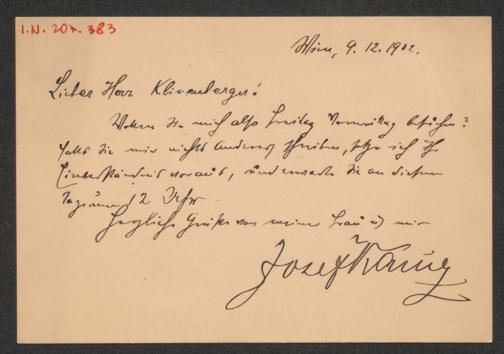 I.N. 207.383
Wien, 9.12.1902.
Lieber Herr Klinenberger!
Wollen Sie mich also Freitag Vormittag besuchen?
Falls Sie mir nichts anderes schreiben, setze ich Ihr
Einverständnis voraus, und erwarte Sie an diesem
Tag um 12 Uhr
Herzliche Grüße von meiner Frau u mir
Josef